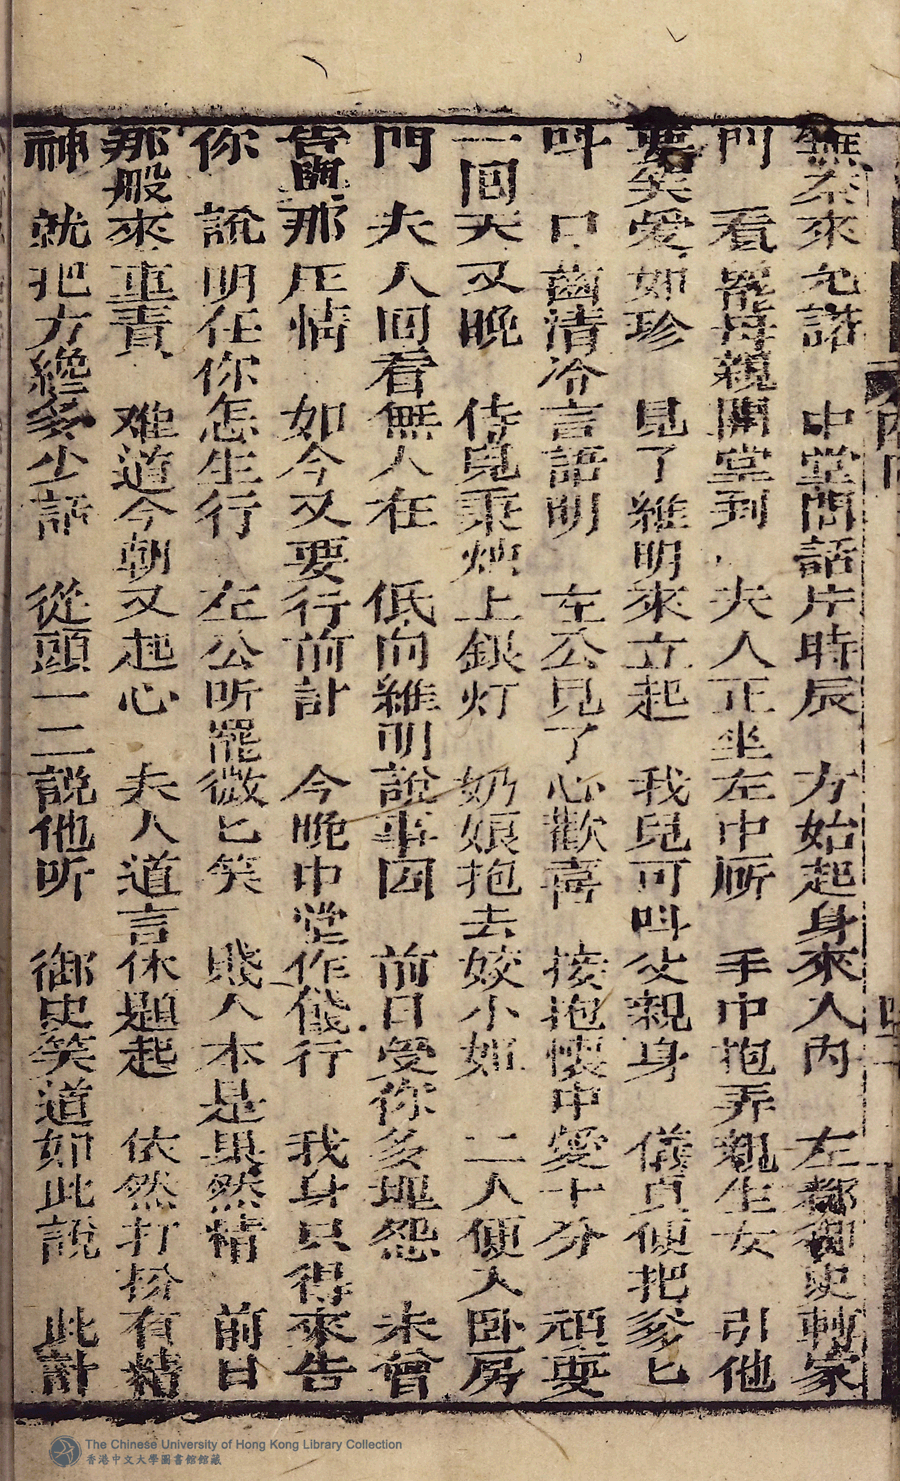 無奈來允諾　中堂問話片時辰　方始起身來入內　左都御史轉家
門　看罷母親開堂到　夫人正坐左中所　手中抱弄親生女　引他
耍笑愛如珍　見了維明來立起　我兒可呌父親身　儀貞便把爹匕
呌　口齒清冷言語明　左公見了心歡喜　接抱懷中愛十分　頑耍
一回天又晚　侍兒秉炉上銀灯　奶娘抱去姣小姐　二人便入卧房
門　夫人回看無人在　低向維明說事因　前日受你多埋怨　未曾
告聞那庄情　如今又要行前計　今晚中堂作俴行　我身只得來告
你　說明任你怎生行　左公听罷微匕笑　賤人本是果然精　前日
那般來重責　难道今朝又起心　夫人道言休題起　依然打扮有精
神　就把方纔多少話　從頭一二說他听　御史笑道如此說　此計
The Chinese University of Hong Kong Library Collection
香港中文大學圖書館館藏